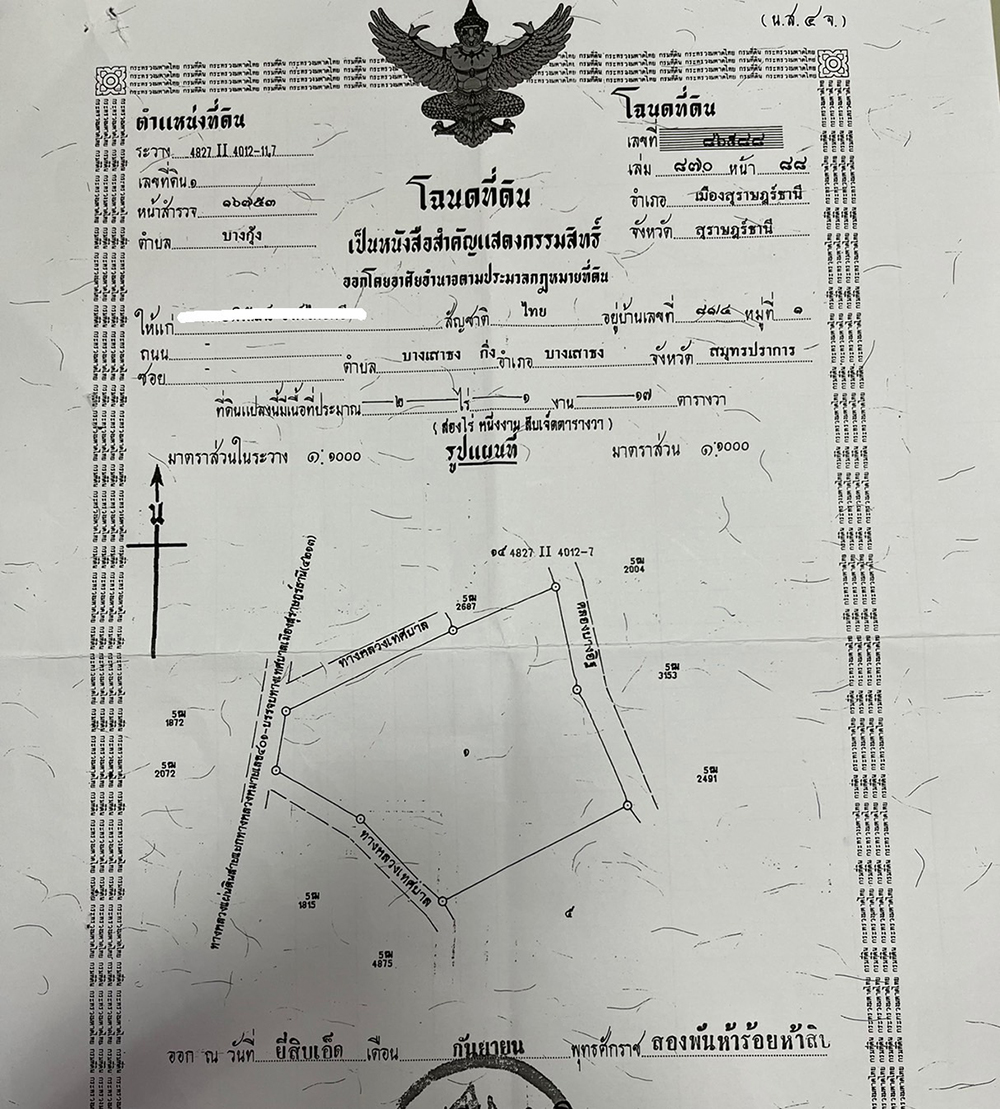 (น.ส.๔ จ.)
ตำแหน่งที่ดิน
ระวาง 4827 II 4012-11,7
เลขที่ดิน ๑
หน้าสำรวจ
ตำบล บางกุ้ง
โฉนดที่ดิน
เลขที่
เล่ม ๘๗๐ หน้า ๘๘
อำเภอ เมืองสุราษฎร์ธานี
จังหวัด สุราษฎร์ธานี
โฉนดที่ดิน
เป็นหนังสือสำคัญแสดงกรรมสิทธิ์
ออกโดยอาศัยอำนาจตามประมวลกฎหมายที่ดิน
ให้แก่ สัญชาติ ไทย อยู่บ้านเลขที่ ๘๘/๔ หมู่ที่ ๑
ถนน -
ซอย - ตำบล บางเสาธง กิ่งอำเภอ บางเสาธง จังหวัด สมุทรปราการ
ที่ดินแปลงนี้มีเนื้อที่ประมาณ ๒ ไร่ ๑ งาน ๑๗ ตารางวา
(สองไร่ หนึ่งงาน สิบเจ็ดตารางวา)
มาตราส่วนในระวาง ๑:๑๐๐๐ รูปแผนที่ มาตราส่วน ๑:๑๐๐๐
น
๑๔ 4827 II 4012-7
5ฒ
2004
5ฒ
2687
ทางหลวงเทศบาล
คลองบางชีฐ
5ฒ
3153
5ฒ
1872
5ฒ
2072
๑
5ฒ
2491
ทางหลวงแผ่นดินสายแยกทางหลวงหมายเลข๔๐๑-บรรจบทางเทศบาลเมืองสุราษฎร์ธานี(๔๒๑๓)
ทางหลวงเทศบาล
5ฒ
1815
๕
5ฒ
4875
ออก ณ วันที่ ยี่สิบเอ็ด เดือน กันยายน พุทธศักราช สองพันห้าร้อยห้าสิบ